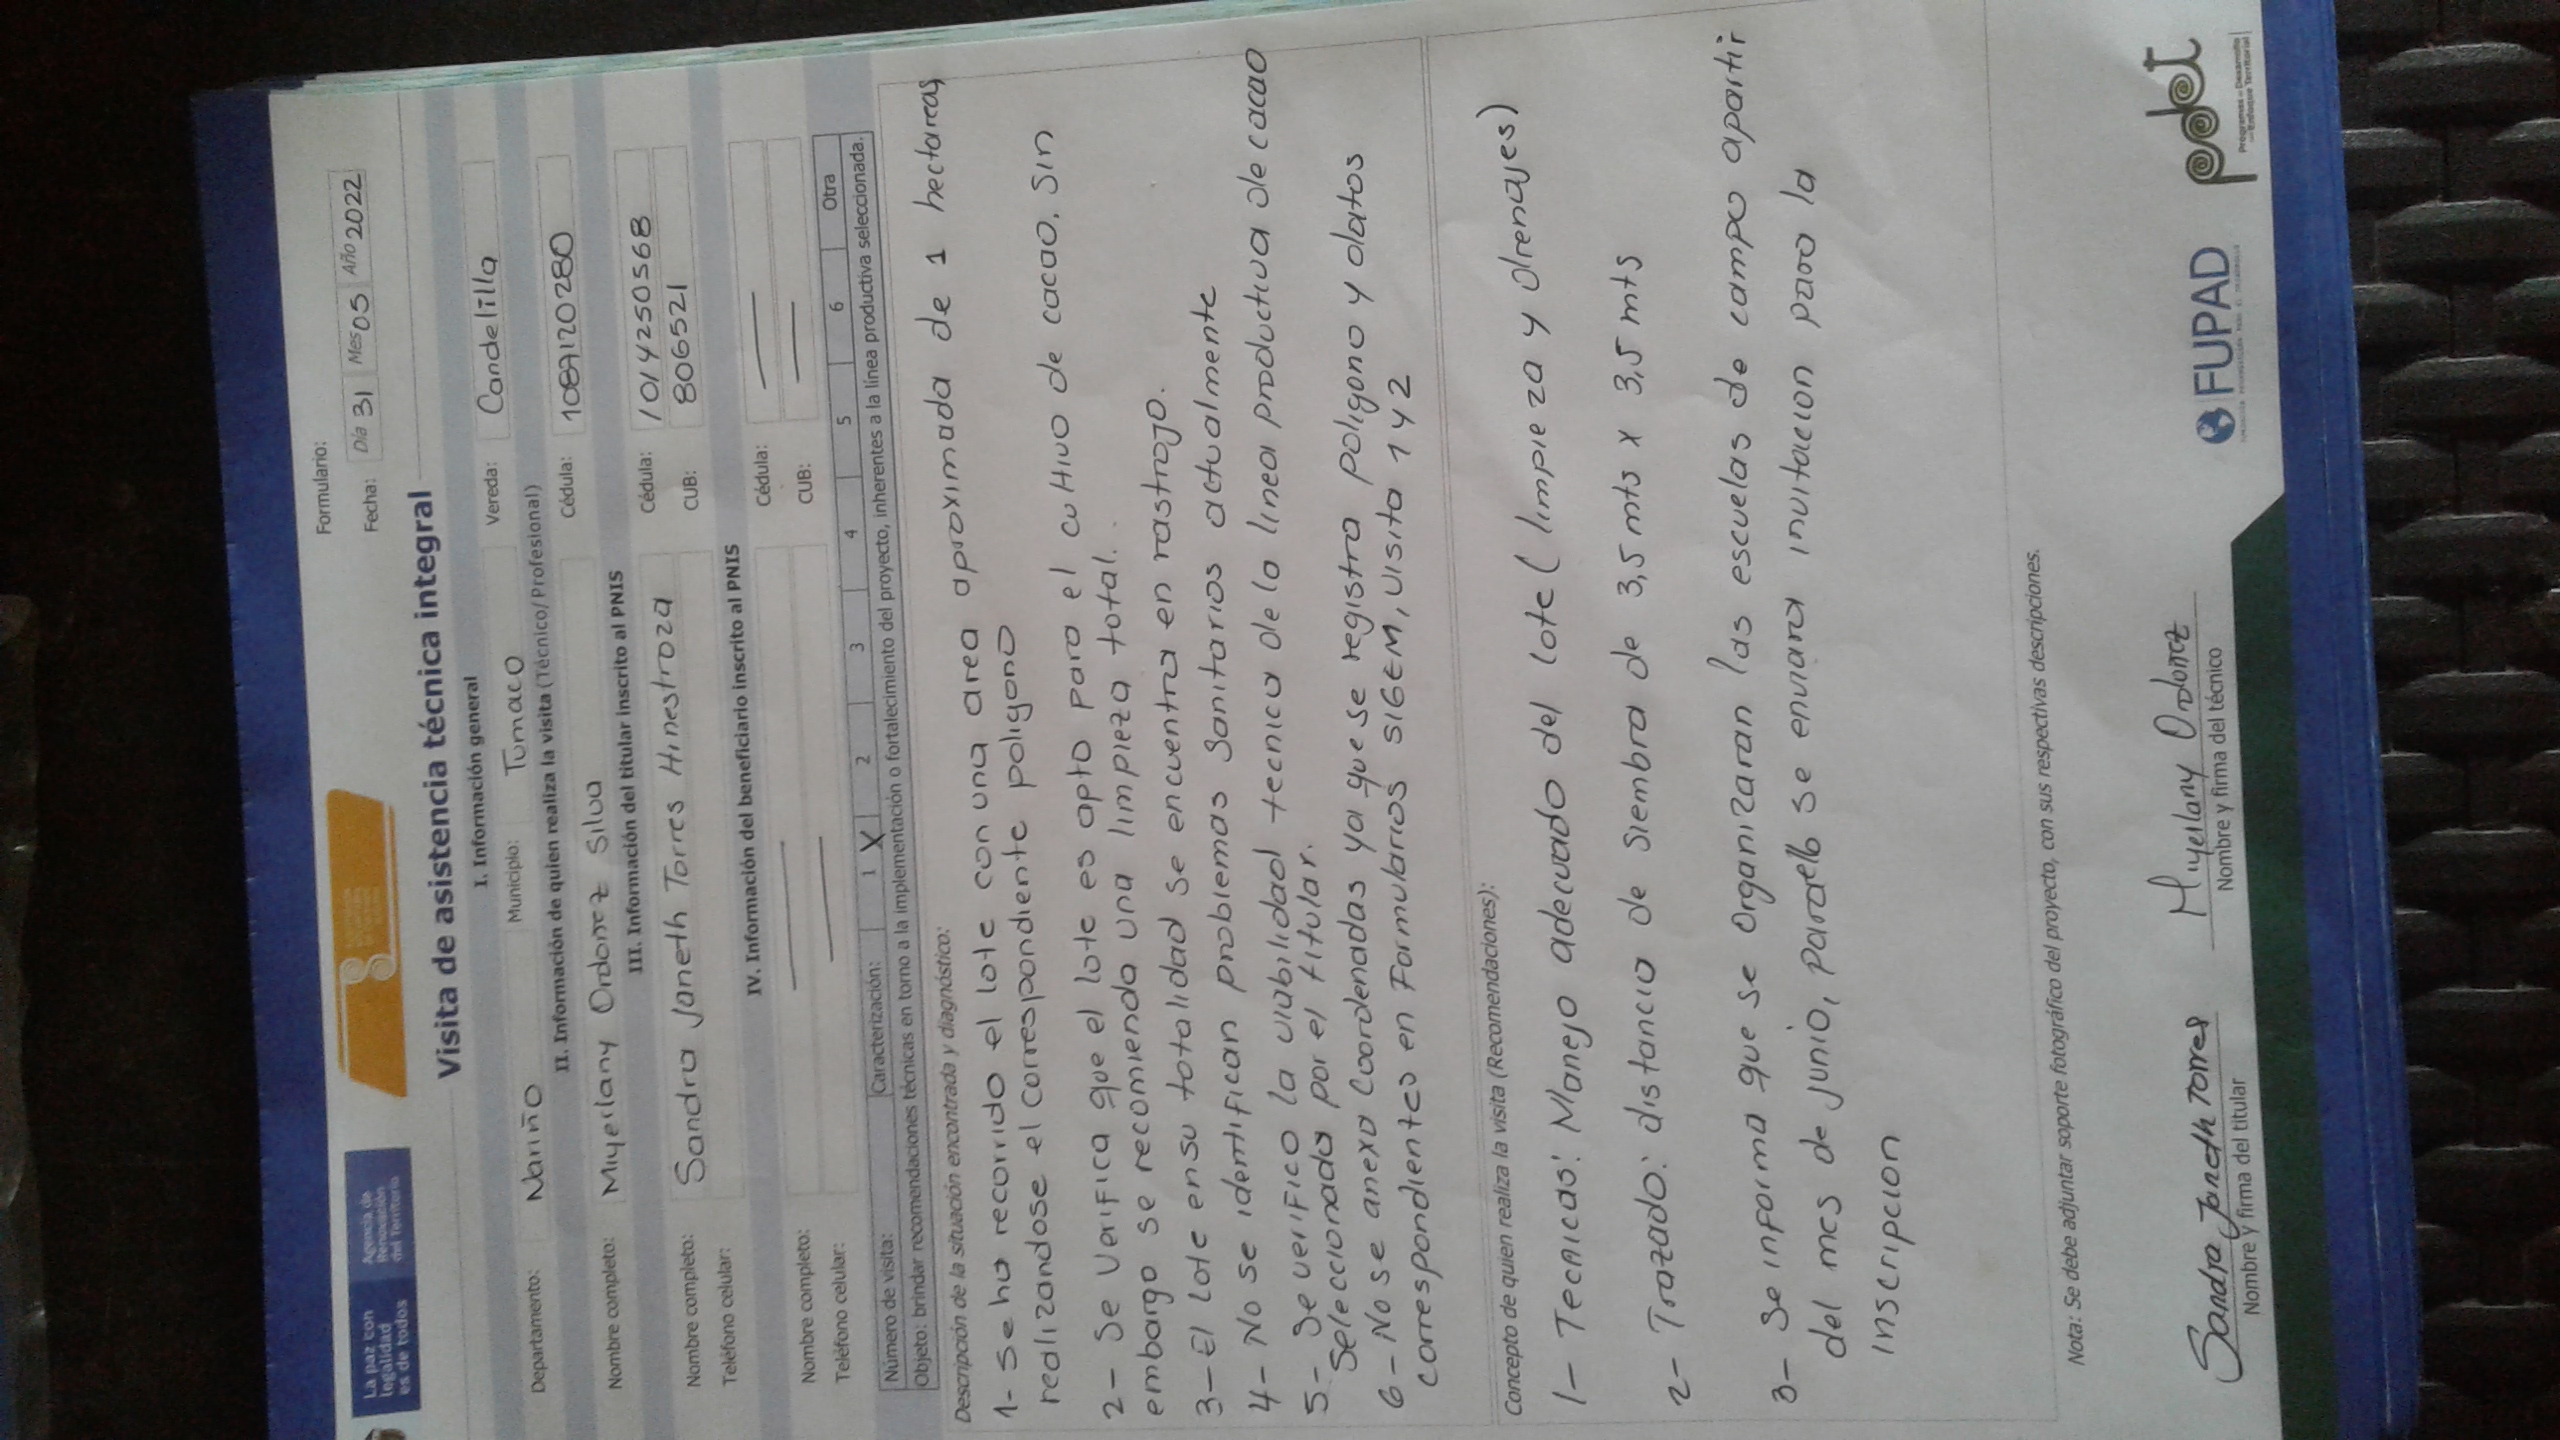 La paz con
legalidad
es de todos
Agencia de
Renovación
del Territorio
Formulario:
Fecha: Día 31 Mes 05 Año 2022
Visita de asistencia técnica integral
I. Información general
Departamento: Nariño Municipio: Tumaco Vereda: Candelilla
II. Información de quien realiza la visita (Técnico/Profesional)
Nombre completo: Miyerlany Ordoñez Silva Cédula: 1087120280
III. Información del titular inscrito al PNIS
Nombre completo: Sandra Janeth Torres Hinestroza Cédula: 1014250568
Teléfono celular: CUB: 806521
IV. Información del beneficiario inscrito al PNIS
Nombre completo: — Cédula: —
Teléfono celular: — CUB: —
Número de visita: Caracterización: 1 X 2 3 4 5 6 Otra
Objeto: brindar recomendaciones técnicas en torno a la implementación o fortalecimiento del proyecto, inherentes a la línea productiva seleccionada.
Descripción de la situación encontrada y diagnóstico:
1- Se ha recorrido el lote con una area aproximada de 1 hectareas
realizandose el correspondiente poligono
2- Se verifica que el lote es apto para el cultivo de cacao. Sin
embargo se recomienda una limpieza total.
3- El lote en su totalidad se encuentra en rastrojo.
4- No se identifican problemas Sanitarios actualmente
5- Se verifico la viabilidad tecnica de la linea productiva de cacao
Seleccionada por el titular.
6- No se anexa Coordenadas ya que se registra poligono y datos
correspondientes en Formularios SIGEM, visita 1 y 2
Concepto de quien realiza la visita (Recomendaciones):
1- Tecnicas: Manejo adecuado del lote (limpieza y drenajes)
2- Trazado: distancia de Siembra de 3,5 mts x 3,5 mts
3- Se informa que se organizaran las escuelas de campo apartir
del mes de junio, para ello se enviara invitacion para la
inscripcion
Nota: Se debe adjuntar soporte fotográfico del proyecto, con sus respectivas descripciones.
Sandra Janeth Torres
Nombre y firma del titular
Miyerlany Ordoñez
Nombre y firma del técnico
FUPAD
pdet
Programas de Desarrollo
con Enfoque Territorial